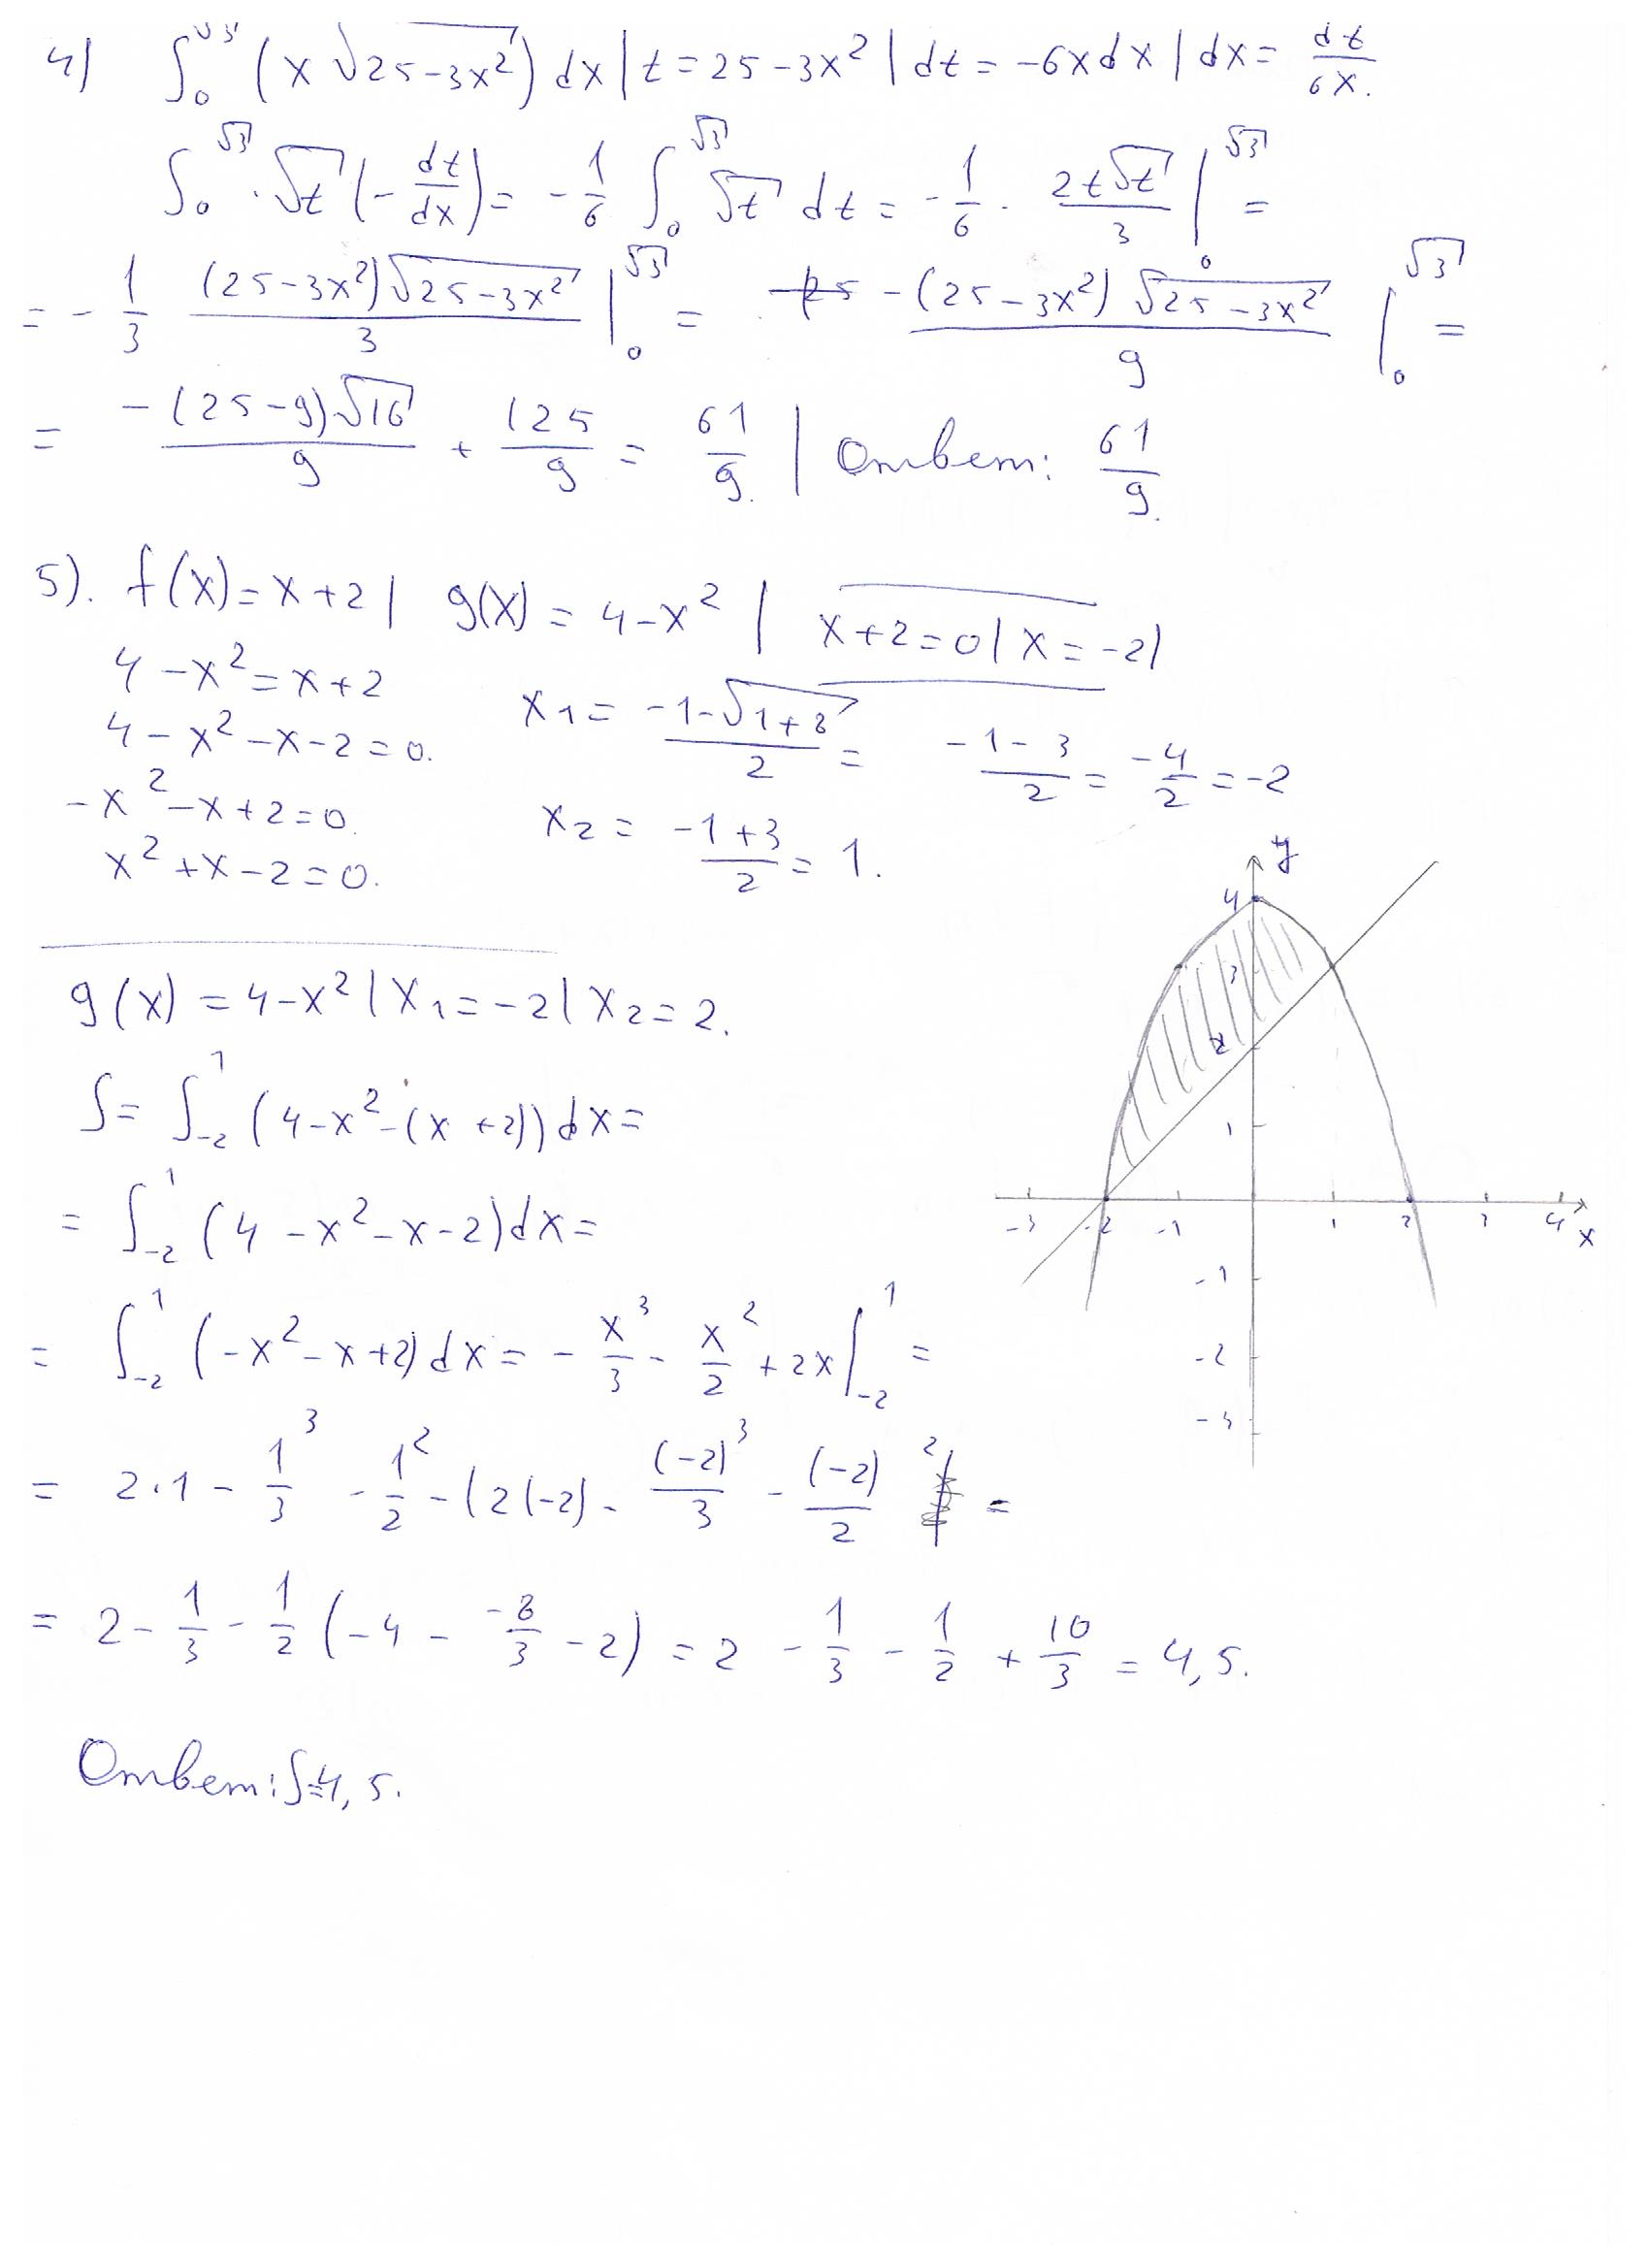 4) ∫₀^√3 (x √25-3x²) dx | t = 25-3x² | dt = -6xdx | dx = dt/6x.
∫₀^√3 · √t (-dt/dx) = -1/6 ∫₀^√3 √t dt = -1/6 · 2t√t/3 |₀^√3 =
= -1/3 (25-3x²)√25-3x²/3 |₀^√3 = -(25-3x²)√25-3x²/9 |₀^√3 =
= -(25-9)√16/9 + 125/9 = 61/9. | Ответ: 61/9.
5). f(x) = x+2 | g(x) = 4-x² | x+2=0 | x = -2 |
4-x² = x+2
4-x²-x-2 = 0.
-x²-x+2=0.
x²+x-2=0.
x₁ = -1-√1+8/2 = -1-3/2 = -4/2 = -2
x₂ = -1+3/2 = 1.
g(x) = 4-x² | x₁ = -2 | x₂ = 2.
S = ∫₋₂¹ (4-x²-(x+2))dx =
= ∫₋₂¹ (4-x²-x-2)dx =
= ∫₋₂¹ (-x²-x+2)dx = -x³/3 - x²/2 + 2x |₋₂¹ =
= 2·1 - 1³/3 - 1²/2 - (2(-2) - (-2)³/3 - (-2)²/2 =
= 2 - 1/3 - 1/2 (-4 - -8/3 - 2) = 2 - 1/3 - 1/2 + 10/3 = 4,5.
Ответ: S=4,5.
y
4
3
2
1
-3 -2 -1 1 2 3 4 x
-1
-2
-3